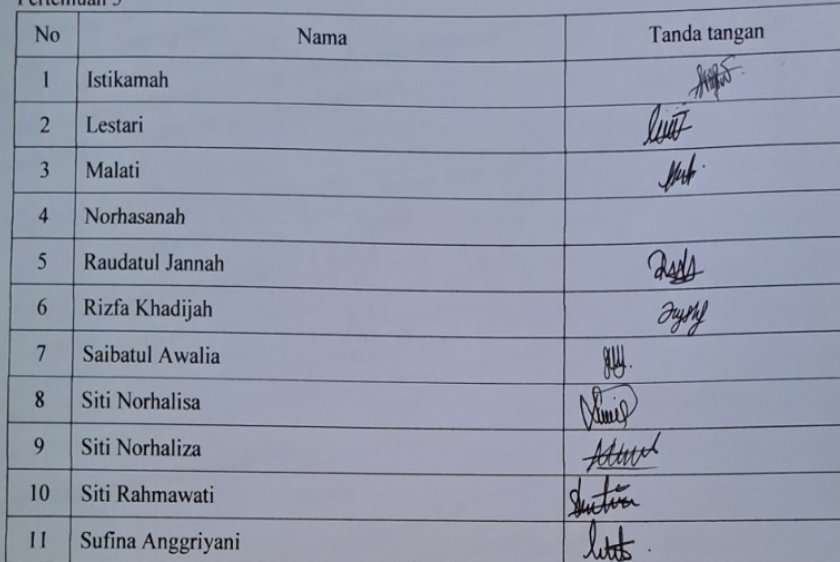 Pertemuan 3
No Nama Tanda tangan
1 Istikamah
2 Lestari
3 Malati
4 Norhasanah
5 Raudatul Jannah
6 Rizfa Khadijah
7 Saibatul Awalia
8 Siti Norhalisa
9 Siti Norhaliza
10 Siti Rahmawati
11 Sufina Anggriyani